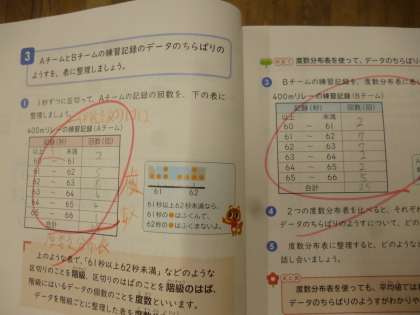 3 AチームとBチームの練習記録のデータのちらばりの
ようすを、表に整理しましょう。
1 1秒ずつに区切って、Aチームの記録の回数を、下の表に
整理しましょう。
400mリレーの練習記録(Aチーム)
記録(秒) 回数(回)
以上 未満
60 ~ 61 2
61 ~ 62
62 ~ 63
63 ~ 64
64 ~ 65
65 ~ 66
合計
度
数
61 62
61秒以上62秒未満なら、
61秒の●はふくんで、
62秒の●はふくまないよ。
上のような表で、「61秒以上62秒未満」などのような
区切りのことを階級、区切りのはばのことを階級のはば、
階級にはいるデータの個数のことを度数といいます。
データを階級ごとに整理した表を
度数分布表を使って、データのちらばり
3 Bチームの練習記録を、度数分布表に表
400mリレーの練習記録(Bチーム)
記録(秒) 回数(回)
以上 未満
60 ~ 61 2
61 ~ 62 7
62 ~ 63 7
63 ~ 64 2
64 ~ 65 2
65 ~ 66 5
合計 25
4 2つの度数分布表を比べると、それぞれ
データのちらばりのようすについて、どの
5 度数分布表に整理すると、どのような
話し合いましょう。
まとめ
度数分布表を使っても、平均値では
データのちらばりのようすがわかり